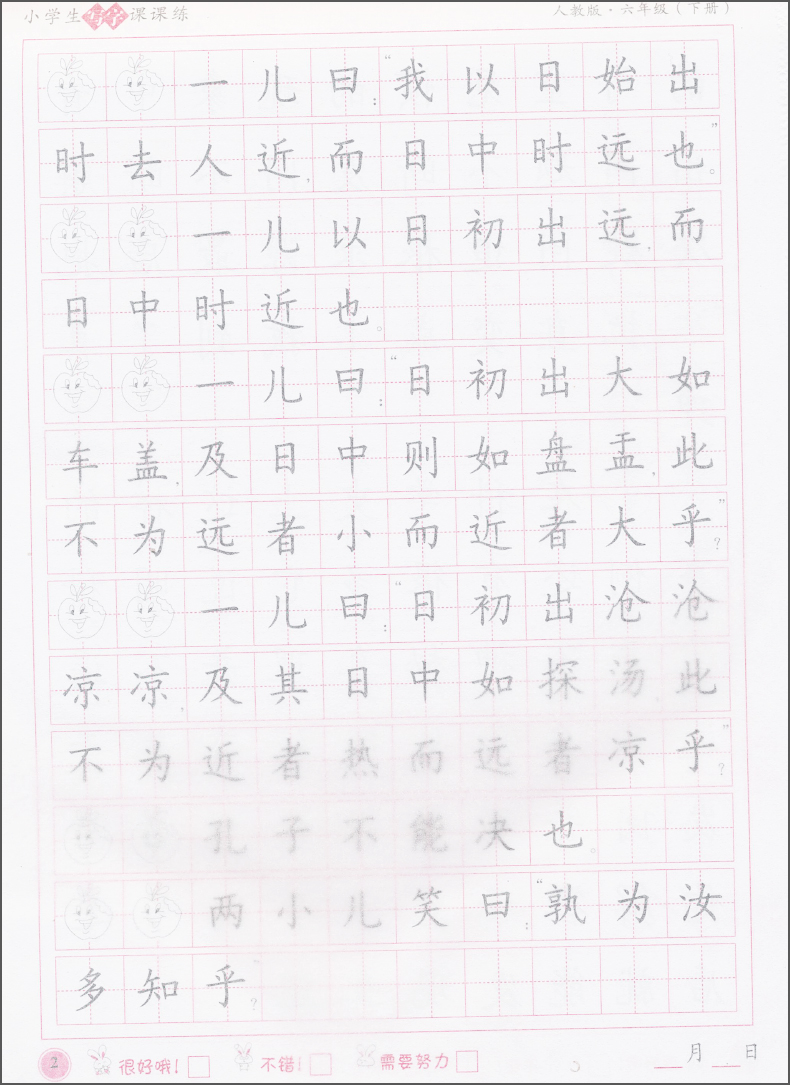 小学生写字课课练
人教版·六年级（下册）
一儿曰：“我以日始出
时去人近，而日中时远也。”
一儿以日初出远，而
日中时近也。
一儿曰：“日初出大如
车盖及日中则如盘盂，此
不为远者小而近者大乎？”
一儿曰：“日初出沧沧
凉凉，及其日中如探汤，此
不为近者热而远者凉乎？”
孔子不能决也。
两小儿笑曰：“孰为汝
多知乎？
2
很好哦！
不错！
需要努力
月 日